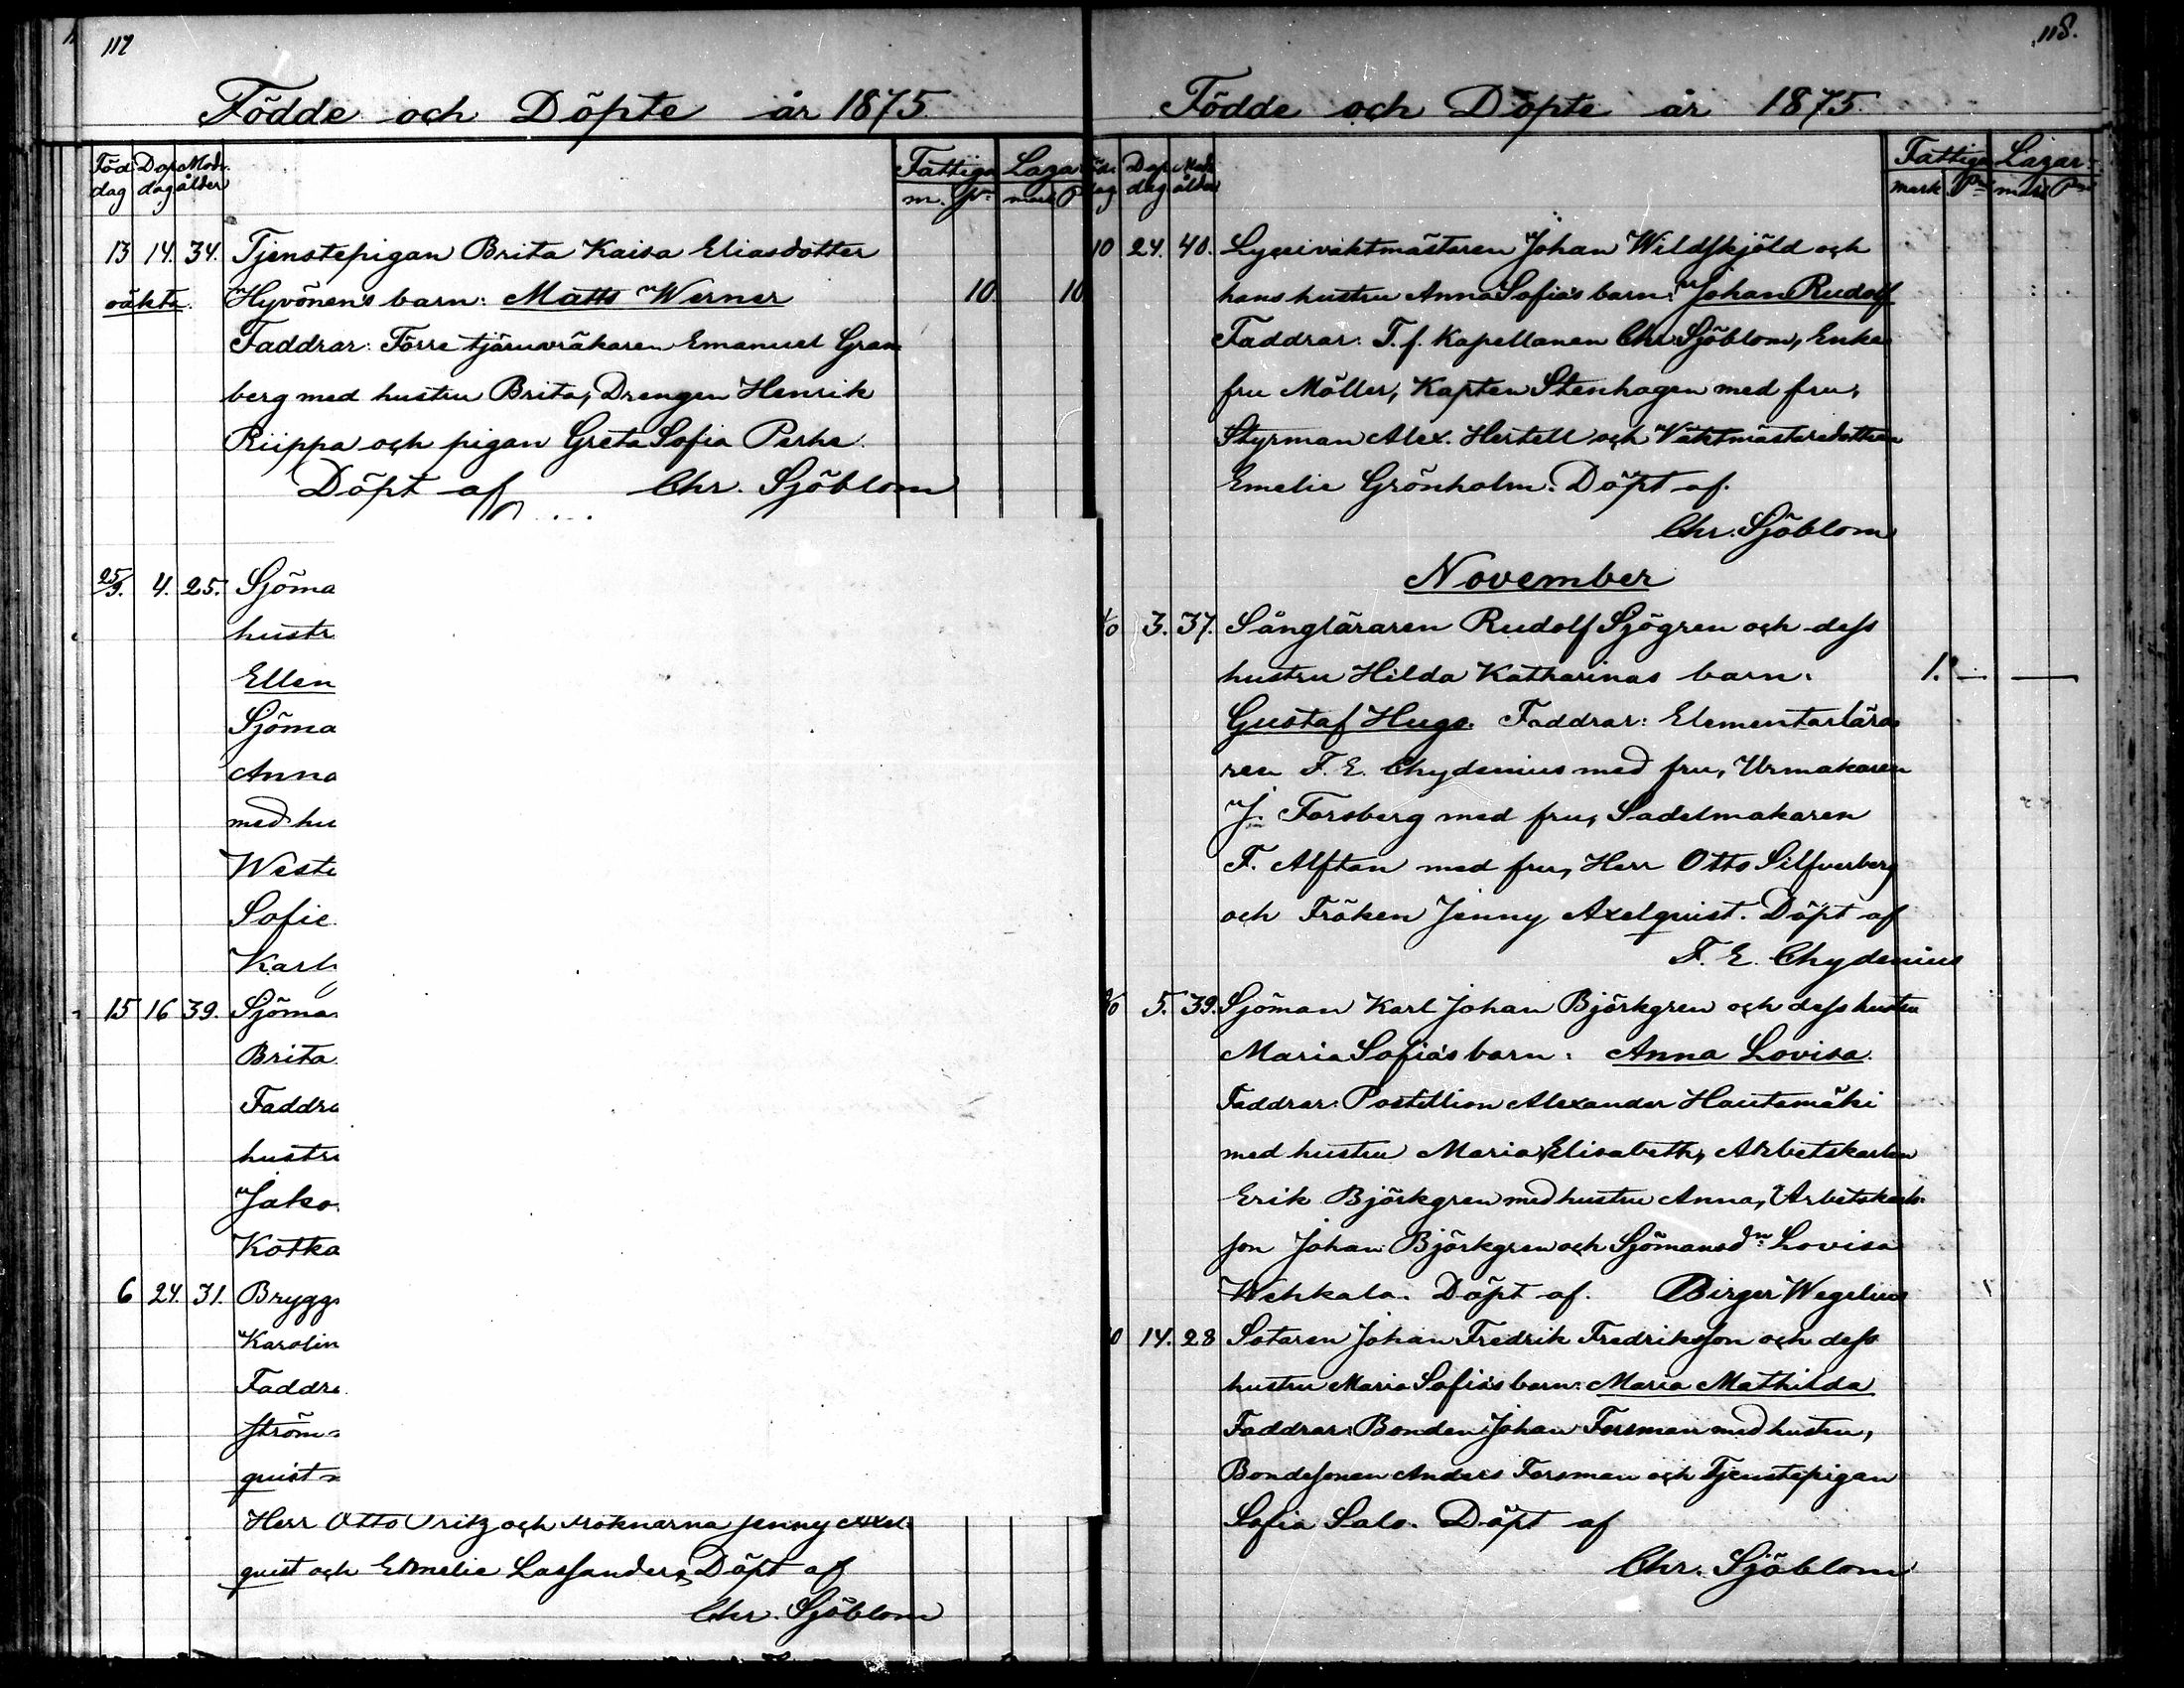 117
Födde och Döpte år 1875.
Föd. Dop Mods. Fattiga Laza
dag dag ålder m. pi mark P
13 14. 34. Tjenstepigan Brita Kaisa Eliasdotter
oäkta. Hyvönen's barn: Matts Werner 10. 10
Faddrar: Förre tjäruvräkaren Emanuel Gran
berg med hustru Brita, Drengen Henrik
Riippa och pigan Greta Sofia Perhe.
Döpt af Chr. Sjöblom
25/9. 4. 25. Sjöma
hustr
Ellen
Sjöma
Anna
med hu
Weste
Sofie
Karl
15 16 39. Sjöma
Brita
Faddra
hustru
Jako
Kotka
6 24. 31. Brygg
Karolin
Faddra
ström
quist
Herr Otto Fritz och Fröknarna Jenny Axel-
quist och Emelie Lassander, Döpt af
Chr. Sjöblom
118.
Födde och Döpte år 1875
Dop Mod Fattiga Lazar-
dag ålder mark Pi mark Pi
10 24. 40. Lyceivaktmästaren Johan Wildskjöld och
hans hustru Anna Sofia's barn: Johan Rudolf
Faddrar: T. f. Kapellanen Chr. Sjöblom, Enke
fru Möller, Kapten Stenhagen med fru,
Styrman Alex. Hertell och Vaktmästaredottren
Emelie Grönholm. Döpt af.
Chr. Sjöblom
November
3. 37. Sångläraren Rudolf Sjögren och dess
hustru Hilda Katharinas barn: 1. — —
Gustaf Hugo. Faddrar: Elementarlära
ren F. E. Chydenius med fru, Urmakaren
J. Forsberg med fru, Sadelmakaren
F. Alftan med fru, Herr Otto Silfverberg
och Fröken Jenny Axelquist. Döpt af
F. E. Chydenius
5. 39. Sjöman Karl Johan Björkgren och dess hustru
Maria Sofia's barn: Anna Lovisa.
Faddrar: Postillion Alexander Hautamäki
med hustru Maria Elisabeth, Arbetskarlen
Erik Björkgren med hustru Anna, Arbetskarls-
son Johan Björkgren och Sjömansdn Lovisa
Wehkala. Döpt af. Birger Wegelius
14. 28 Sotaren Johan Fredrik Fredriksson och dess
hustru Maria Sofia's barn: Maria Mathilda
Faddrar: Bonden Johan Forsman med hustru,
Bondesonen Anders Forsman och Tjenstepigan
Sofia Salo. Döpt af
Chr. Sjöblom